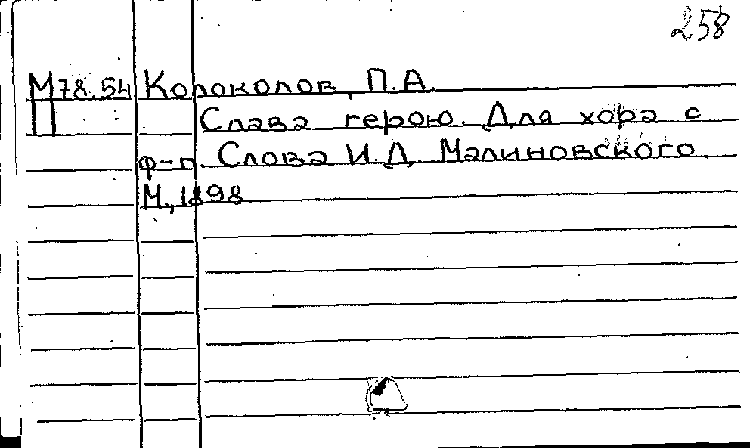 258
М78.54 Колоколов, П.А.
П Слава герою. Для хора с
ф-п. Слова И.Д. Малиновского.
М., 1898